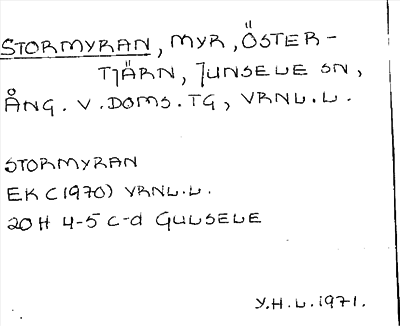 STORMYRAN, MYR, ÖSTER-
TJÄRN, JUNSELE SN,
ÅNG. V. DOMS. TG, VRNL.L.
STORMYRAN
EK C (1970) VRNL.L.
20H 4-5 C-d GULSELE
Y.H.L. 1971.